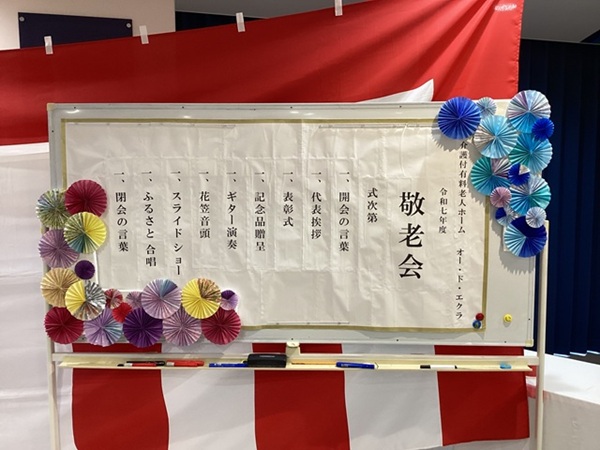 介護付有料老人ホーム　オー・ド・エクラ
令和七年度
敬老会
式次第
一、開会の言葉
一、代表挨拶
一、表彰式
一、記念品贈呈
一、ギター演奏
一、花笠音頭
一、スライドショー
一、ふるさと 合唱
一、閉会の言葉